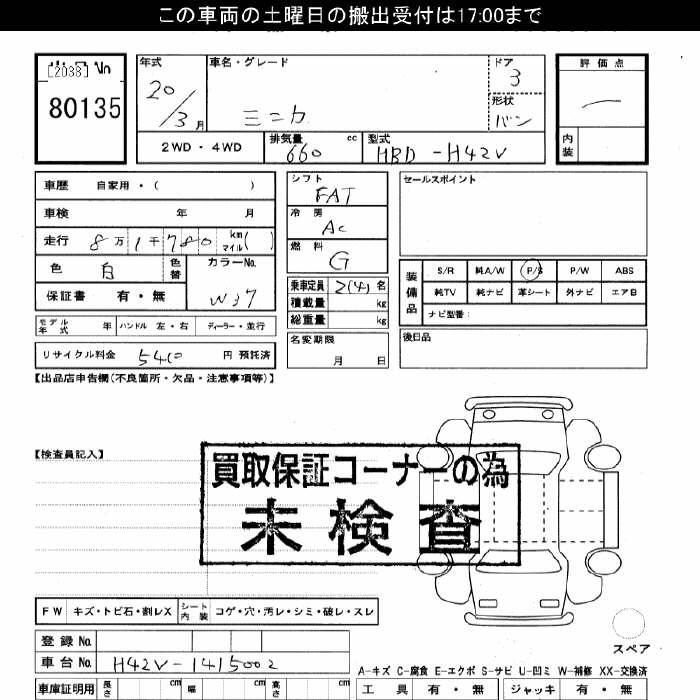 この車両の土曜日の搬出受付は17:00まで
[2038] No
80135
年式 20/3 月
車名・グレード
ミニカ
ドア 3
形状 バン
評価点
内装
2WD・4WD
排気量 660 cc
型式 HBD-H42V
車歴 自家用・( )
車検 年 月
走行 8万1千780 km マイル( )
色 白 色替
カラーNo. W37
保証書 有・無
モデル年式 年 ハンドル 左・右 ディーラー・並行
リサイクル料金 5410 円 預託済
シフト FAT
冷房 AC
燃料 G
乗車定員 2(4) 名
積載量 kg
総重量 kg
名変期限 月 日
セールスポイント
装備品
S/R 純A/W P/S P/W ABS
純TV 純ナビ 革シート 外ナビ エアB
ナビ型番:
後日品
【出品店申告欄(不良箇所・欠品・注意事項等)】
【検査員記入】
買取保証コーナーの為
未検査
FW キズ・トビ石・割レX シート内装 コゲ・穴・汚レ・シミ・破レ・スレ
登録No.
車台No. H42V-1415002
スペア
A-キズ C-腐食 E-エクボ S-サビ U-凹ミ W-補修 XX-交換済
車庫証明用 長さ cm 幅 cm 高さ cm
工具 有・無 ジャッキ 有・無